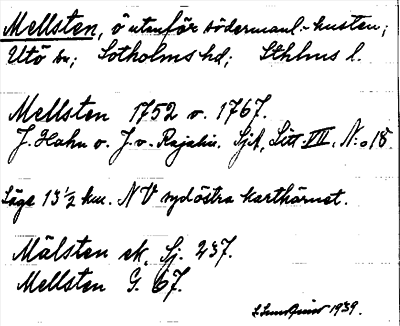 Mellsten, ö utanför södermanl.-kusten;
Utö sn; Sotholms hd; Sthlms l.
Mellsten 1752 o. 1767.
J. Hahn o. J. v. Rajalin. Sjf, Litt. VII, N:o 18.
Läge 13 1/2 km. NV sydöstra karthörnet.
Mälsten ek. Sj. 237.
Mellsten G. 67.
1939.